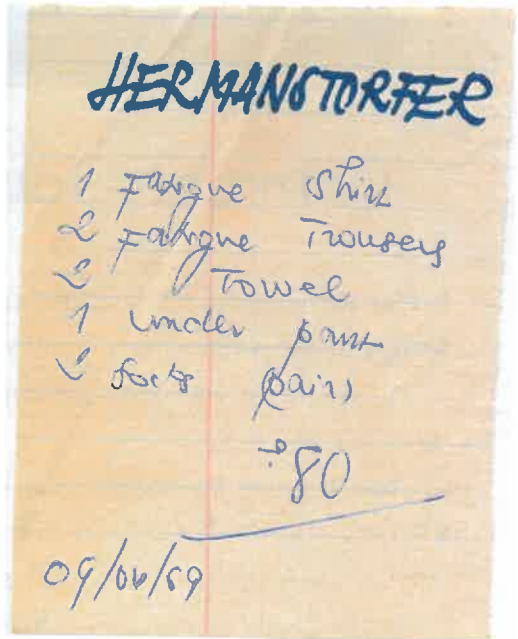 HERMANSTORFER
1 Fatigue Shirt
2 Fatigue Trousers
2 Towel
1 under pant
2 Socks (pair)
80
09/04/69